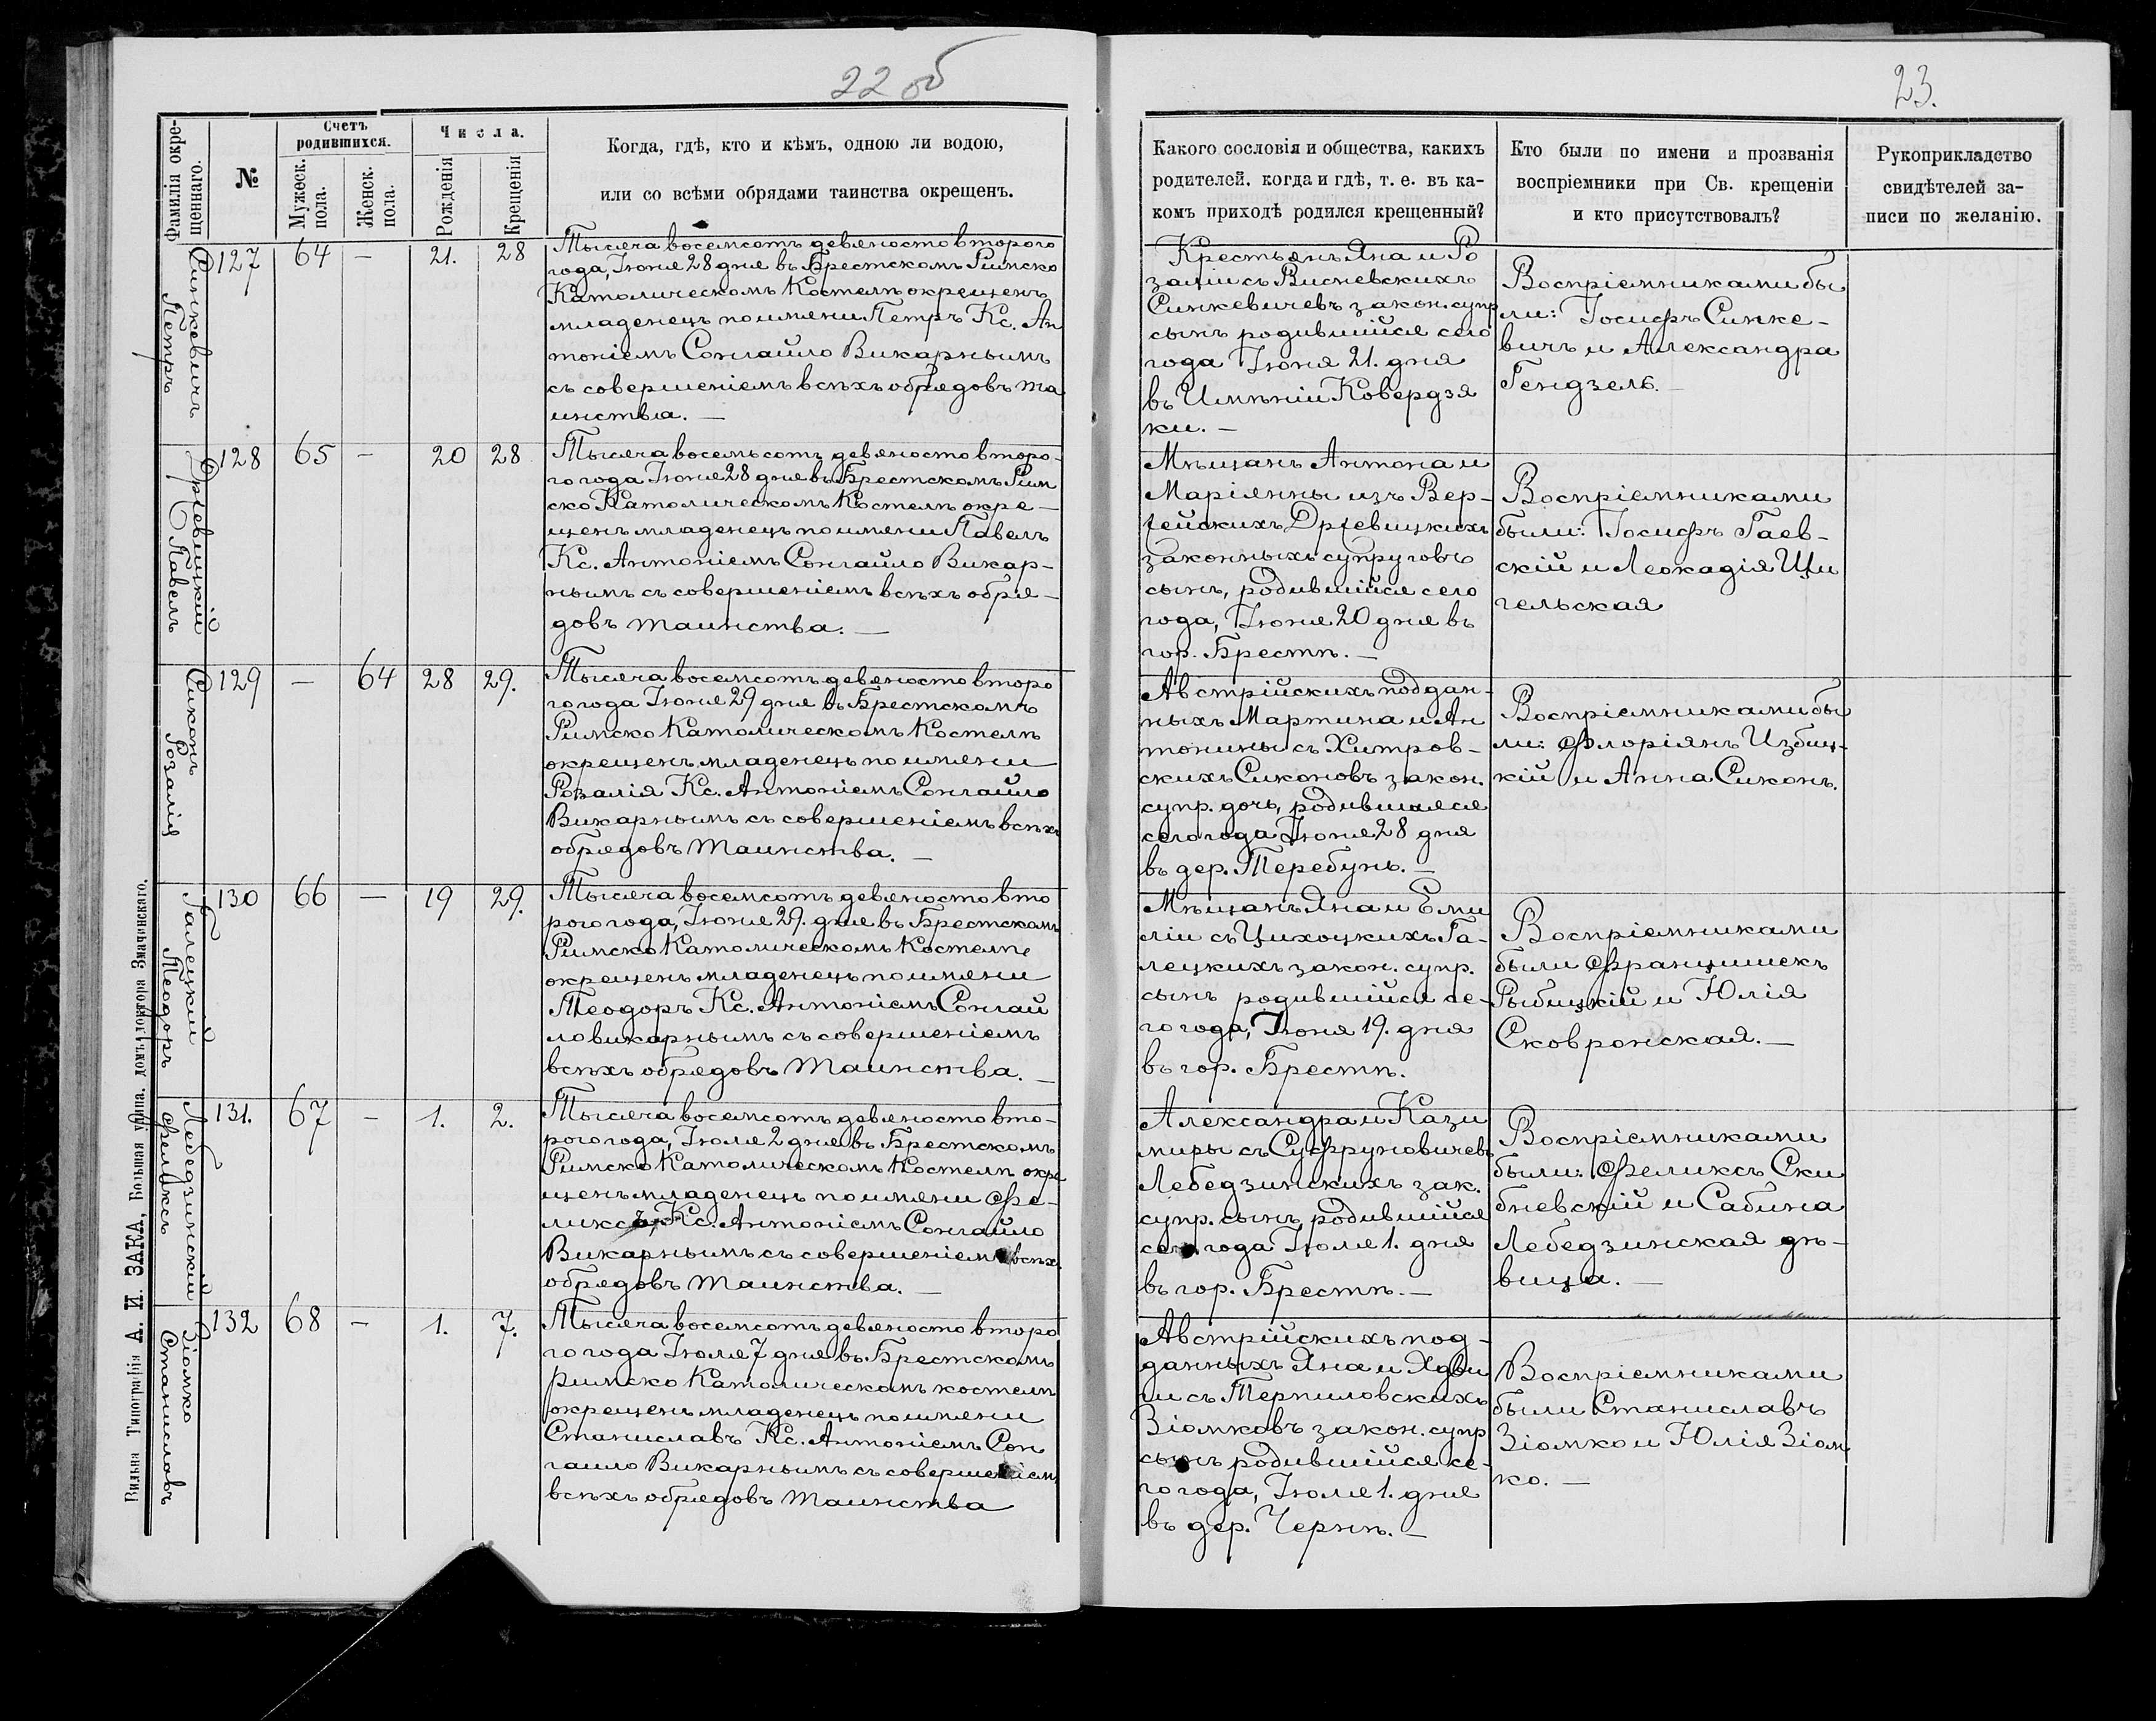 22 об
23.
Фамилія окре-
щеннаго.
№
Счетъ
родившихся.
Мужеск.
пола.
Женск.
пола.
Числа.
Рожденія
Крещенія
Когда, гдѣ, кто и кѣмъ, одною ли водою,
или со всѣми обрядами таинства окрещенъ.
Какого сословія и общества, какихъ
родителей, когда и гдѣ, т. е. въ ка-
комъ приходѣ родился крещенный?
Кто были по имени и прозванія
воспріемники при Св. крещеніи
и кто присутствовалъ?
Рукоприкладство
свидѣтелей за-
писи по желанію.
Синкевичъ
Петръ
127
64
—
21.
28
Тысяча восемсотъ девяносто второго
года, Іюня 28 дня въ Брестскомъ Римско
Католическомъ Костелѣ окрещенъ
младенецъ по имени Петръ Кс. Ан
тоніемъ Сонгайло Викарнымъ
съ совершеніемъ всѣхъ обрядовъ та
инства. —
Крестьянъ Яна и Ро
заліи съ Висневскихъ
Синкевичевъ закон. супр
сынъ родившійся сего
года Іюня 21. дня
въ Имѣніи Ковердзя
ки. —
Воспріемниками бы
ли: Іосифъ Синке-
вичъ и Александра
Гендзель. —
Павелъ
128
65
—
20
28
Тысяча восемьсотъ девяносто второ-
го года Іюня 28 дня въ Брестскомъ Рим
ско Католическомъ Костелѣ окре-
щенъ младенецъ по имени Павелъ
Кс. Антоніемъ Сонгайло Викар-
нымъ съ совершеніемъ всѣхъ обря-
довъ таинства. —
Мѣщанъ Антона и
Маріянны изъ
законныхъ супруговъ
сынъ, родившійся сего
года, Іюня 20 дня въ
гор. Брестѣ. —
Воспріемниками
были: Іосифъ Гаев-
скій и Леокадія Щи
гельская
Сиконъ
Розалія
129
—
64
28
29.
Тысяча восемсотъ девяносто второ
го года Іюня 29 дня въ Брестскомъ
Римско Католическомъ Костелѣ
окрещенъ младенецъ по имени
Розалія Кс. Антоніемъ Сонгайло
Викарнымъ съ совершеніемъ всѣхъ
обрядовъ Таинства. —
Австрійскихъ поддан-
ныхъ Мартина и Ан
тонины съ Хитров-
скихъ Сиконовъ закон.
супр. дочь, родившаяся
сего года Іюня 28 дня
въ дер. Теребунь. —
Воспріемниками бы
ли: Флоріянъ Избиц-
кій и Анна Сиконъ.
Галецкій
Теодоръ
130
66
—
19
29.
Тысяча восемсотъ девяносто вто
рого года, Іюня 29. дня въ Брестскомъ
Римско Католическомъ Костелѣ
окрещенъ младенецъ по имени
Теодоръ Кс. Антоніемъ Сонгай
ло викарнымъ съ совершеніемъ
всѣхъ обрядовъ Таинства. —
Мѣщанъ Яна и Еми
ліи съ Цихоцкихъ Га-
лецкихъ закон. супр.
сынъ родившійся се-
го года, Іюня 19. дня
въ гор. Брестѣ.
Воспріемниками
были Францишекъ
Рыбицкій и Юлія
Сковронская. —
Лебедзинскій
Феликсъ
131.
67
—
1.
2.
Тысяча восемсотъ девяносто вто-
рого года, Іюля 2 дня въ Брестскомъ
Римско Католическомъ Костелѣ окре
щенъ младенецъ по имени Фе-
ликсъ, Кс. Антоніемъ Сонгайло
Викарнымъ съ совершеніемъ всѣхъ
обрядовъ Таинства. —
Александра и Кази
миры съ Суфруновичевъ
Лебедзинскихъ зак.
супр. сынъ, родившійся
сего года Іюля 1. дня
въ гор. Брестѣ. —
Воспріемниками
были: Феликсъ Ски
бневскій и Сабина
Лебедзинская дѣ-
вица. —
Зіомко
Станиславъ
132
68
—
1.
7.
Тысяча восемсотъ девяносто второ
го года Іюля 7 дня въ Брестскомъ
Римско Католическомъ костелѣ
окрещенъ младенецъ по имени
Станиславъ Кс. Антоніемъ Сон
гайло Викарнымъ съ совершеніем
всѣхъ обрядовъ Таинства
Австрійскихъ под-
данныхъ Яна и Ядви
ги съ Терпиловскихъ
Зіомковъ закон. супр
сынъ родившійся се-
го года, Іюля 1. дня
въ дер. Чернѣ. —
Воспріемниками
были Станиславъ
Зіомко и Юлія Зіом
ко. —
Вильна Типографія А. И. ЗАКА, Большая улица, домъ доктора Змачинскаго.